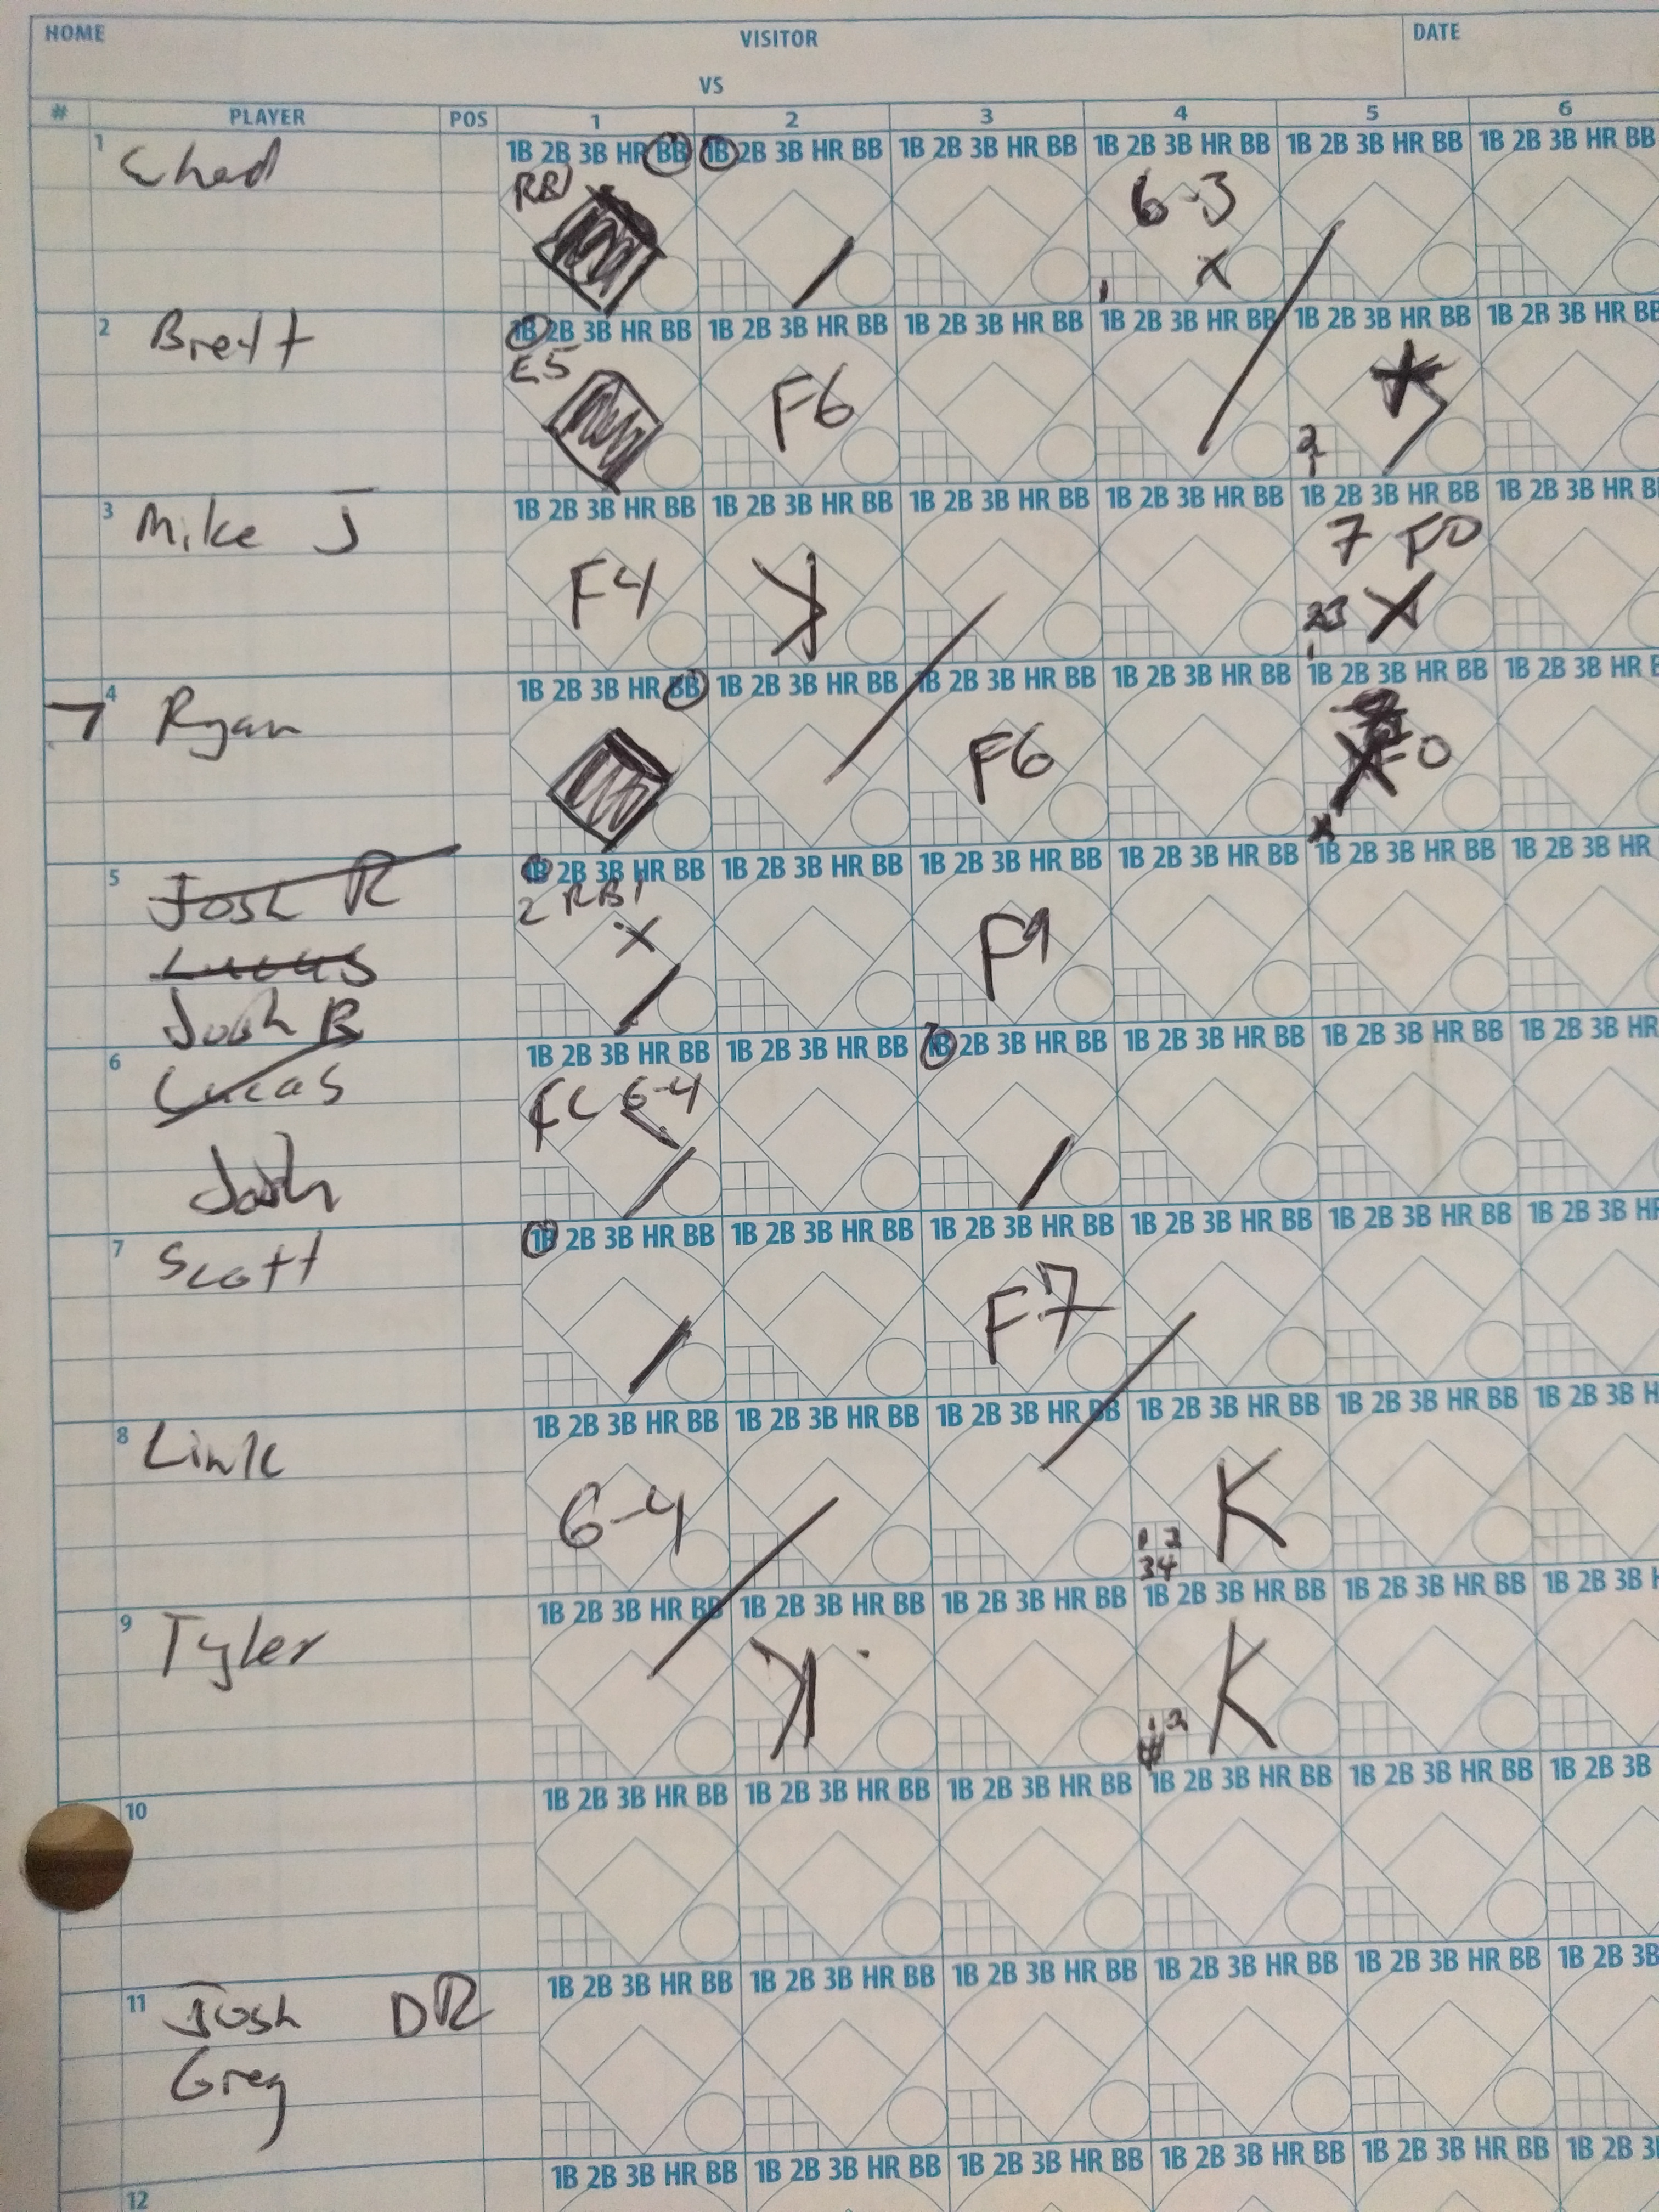 HOME VISITOR DATE
VS
# PLAYER POS 1 2 3 4 5 6
1 Chad 1B 2B 3B HR BB 1B 2B 3B HR BB 1B 2B 3B HR BB 1B 2B 3B HR BB 1B 2B 3B HR BB 1B 2B 3B HR BB
RBI 6-3
2 Brett 1B 2B 3B HR BB 1B 2B 3B HR BB 1B 2B 3B HR BB 1B 2B 3B HR BB 1B 2B 3B HR BB 1B 2B 3B HR BB
E5 F6
3 Mike J 1B 2B 3B HR BB 1B 2B 3B HR BB 1B 2B 3B HR BB 1B 2B 3B HR BB 1B 2B 3B HR BB 1B 2B 3B HR B
F4 K 7 FO
4 Ryan 1B 2B 3B HR BB 1B 2B 3B HR BB 1B 2B 3B HR BB 1B 2B 3B HR BB 1B 2B 3B HR BB 1B 2B 3B HR
F6
5 Josh R 1B 2B 3B HR BB 1B 2B 3B HR BB 1B 2B 3B HR BB 1B 2B 3B HR BB 1B 2B 3B HR BB 1B 2B 3B HR
2 RBI F9
Lucas
Josh R
6 Lucas 1B 2B 3B HR BB 1B 2B 3B HR BB 1B 2B 3B HR BB 1B 2B 3B HR BB 1B 2B 3B HR BB 1B 2B 3B HR
FC 6-4
Josh
7 Scott 1B 2B 3B HR BB 1B 2B 3B HR BB 1B 2B 3B HR BB 1B 2B 3B HR BB 1B 2B 3B HR BB 1B 2B 3B HR
F7
8 Link 1B 2B 3B HR BB 1B 2B 3B HR BB 1B 2B 3B HR BB 1B 2B 3B HR BB 1B 2B 3B HR BB 1B 2B 3B H
6-4 K
1 2
3 4
9 Tyler 1B 2B 3B HR BB 1B 2B 3B HR BB 1B 2B 3B HR BB 1B 2B 3B HR BB 1B 2B 3B HR BB 1B 2B 3B
K K
1 2
10 1B 2B 3B HR BB 1B 2B 3B HR BB 1B 2B 3B HR BB 1B 2B 3B HR BB 1B 2B 3B HR BB 1B 2B 3B
11 Josh DR 1B 2B 3B HR BB 1B 2B 3B HR BB 1B 2B 3B HR BB 1B 2B 3B HR BB 1B 2B 3B HR BB 1B 2B 3B
Greg
12 1B 2B 3B HR BB 1B 2B 3B HR BB 1B 2B 3B HR BB 1B 2B 3B HR BB 1B 2B 3B HR BB 1B 2B